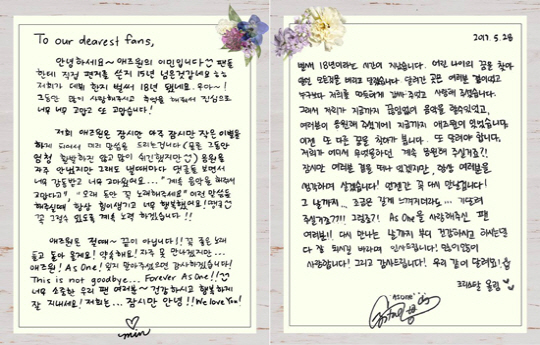 To our dearest fans,
안녕하세요~ 애즈원의 이민입니다 팬들
한테 직접 편지를 쓴지 15년 넘은것같네요 ㅎㅎ
저희가 데뷔 한지 벌써 18년 됐네요. 우와~!
그동안 많이 사랑해주시고 추억을 해줘서 진심으로
너무 너무 고맙고 또 고맙습니다!
저희 애즈원은 잠시만 아주 잠시만 작은 이별을
하게 되어서 미리 말씀을 드리는겁니다 (물론 그동안
엄청 활발하진 않고 많이 쉬긴했지만) 응원을
자주 안됐지만 그래도 낼때마다 댓글들 보면서
너무 감동받고 너무 고마웠어요... "계속 음악을 해줘서
고맙다고", "오래 동안 꼭 노래해주세요" 이런 말씀을
해주실때 항상 힘이생기고 너무 행복했어요!
꼭 그럴수 있도록 계속 노력 하겠습니다!!
애즈원은 절때~ 끝이 아닙니다!! 꼭 좋은 노래
들고 돌아 올게요! 약속해요! 자주 못 만나겠지만...
애즈원! As One! 잊지 말아주셨으면 감사하겠습니다!
This is not goodbye... Forever As One!!
너무 소중한 우리 팬 여러분~ 건강하시고 행복하게
잘 지내세요! 저희는... 잠시만 안녕!! We love You!
min
2017. 5. 28
벌써 18년이라는 시간이 지났습니다. 어린 나이의 꿈을 찾아
모든것을 버리고 왔습니다. 달려간 곳은 여러분 곁이었고
누구보다 저희를 따뜻하게 감싸주었고 사랑해 주셨습니다.
그래서 저희가 지금까지 끊임없이 음악을 할수있었고,
여러분이 응원해 주셨기에 지금까지 애즈원이 있었습니다.
이젠 또 다른 꿈을 찾아가 봅니다. 또 달려야 합니다.
저희가 어디서 무엇을하던 계속 응원해 주실거죠?!
잠시만 여러분 곁을 떠나 있겠지만, 항상 여러분을
생각하며 살겠습니다! 언젠간 꼭 다시 만납니다!
그 날까지.. 조금은 길게 느껴지더라도... 기다려
주실거죠??!! 그렇죠?! As One을 사랑해주신 팬
여러분!! 다시 만나는 날까지 부디 건강하시고 하시는일
다 잘 되시길 바라며 인사드립니다! 많이많이
사랑합니다! 그리고 감사드립니다! 우리 같이 달려요!
크리스탈 올림
AS ONE